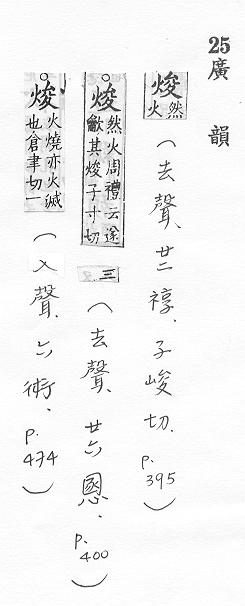 25廣韻
焌 然火(去聲.廿二稕.子峻切. P.395)
焌 然火周禮云遂龡其焌子寸切三(去聲.廿六慁.P.400)
焌 火燒亦火滅也倉聿切一(入聲.六術.P.474)